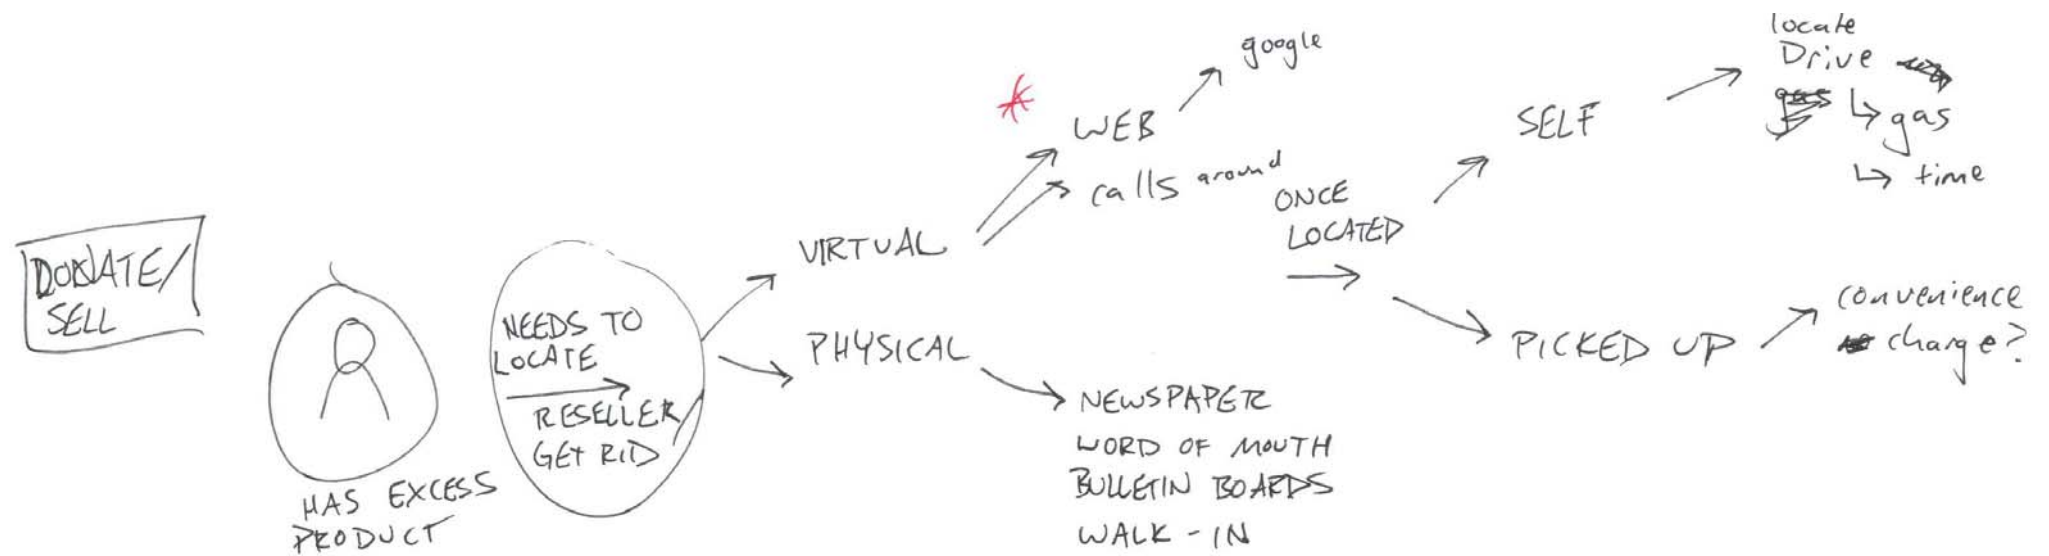 DONATE/
SELL
HAS EXCESS
PRODUCT
NEEDS TO
LOCATE
RESELLER/
GET RID
VIRTUAL
PHYSICAL
WEB
google
calls around
NEWSPAPER
WORD OF MOUTH
BULLETIN BOARDS
WALK-IN
ONCE
LOCATED
SELF
locate
Drive
gas
gas
time
PICKED UP
convenience
charge?